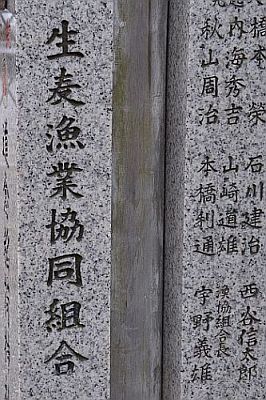 西谷信太郎
漁協組合長
宇野義雄
石川建治
山崎道雄
本橋利通
橋本 榮
内海秀吉
秋山周治
生麦漁業協同組合